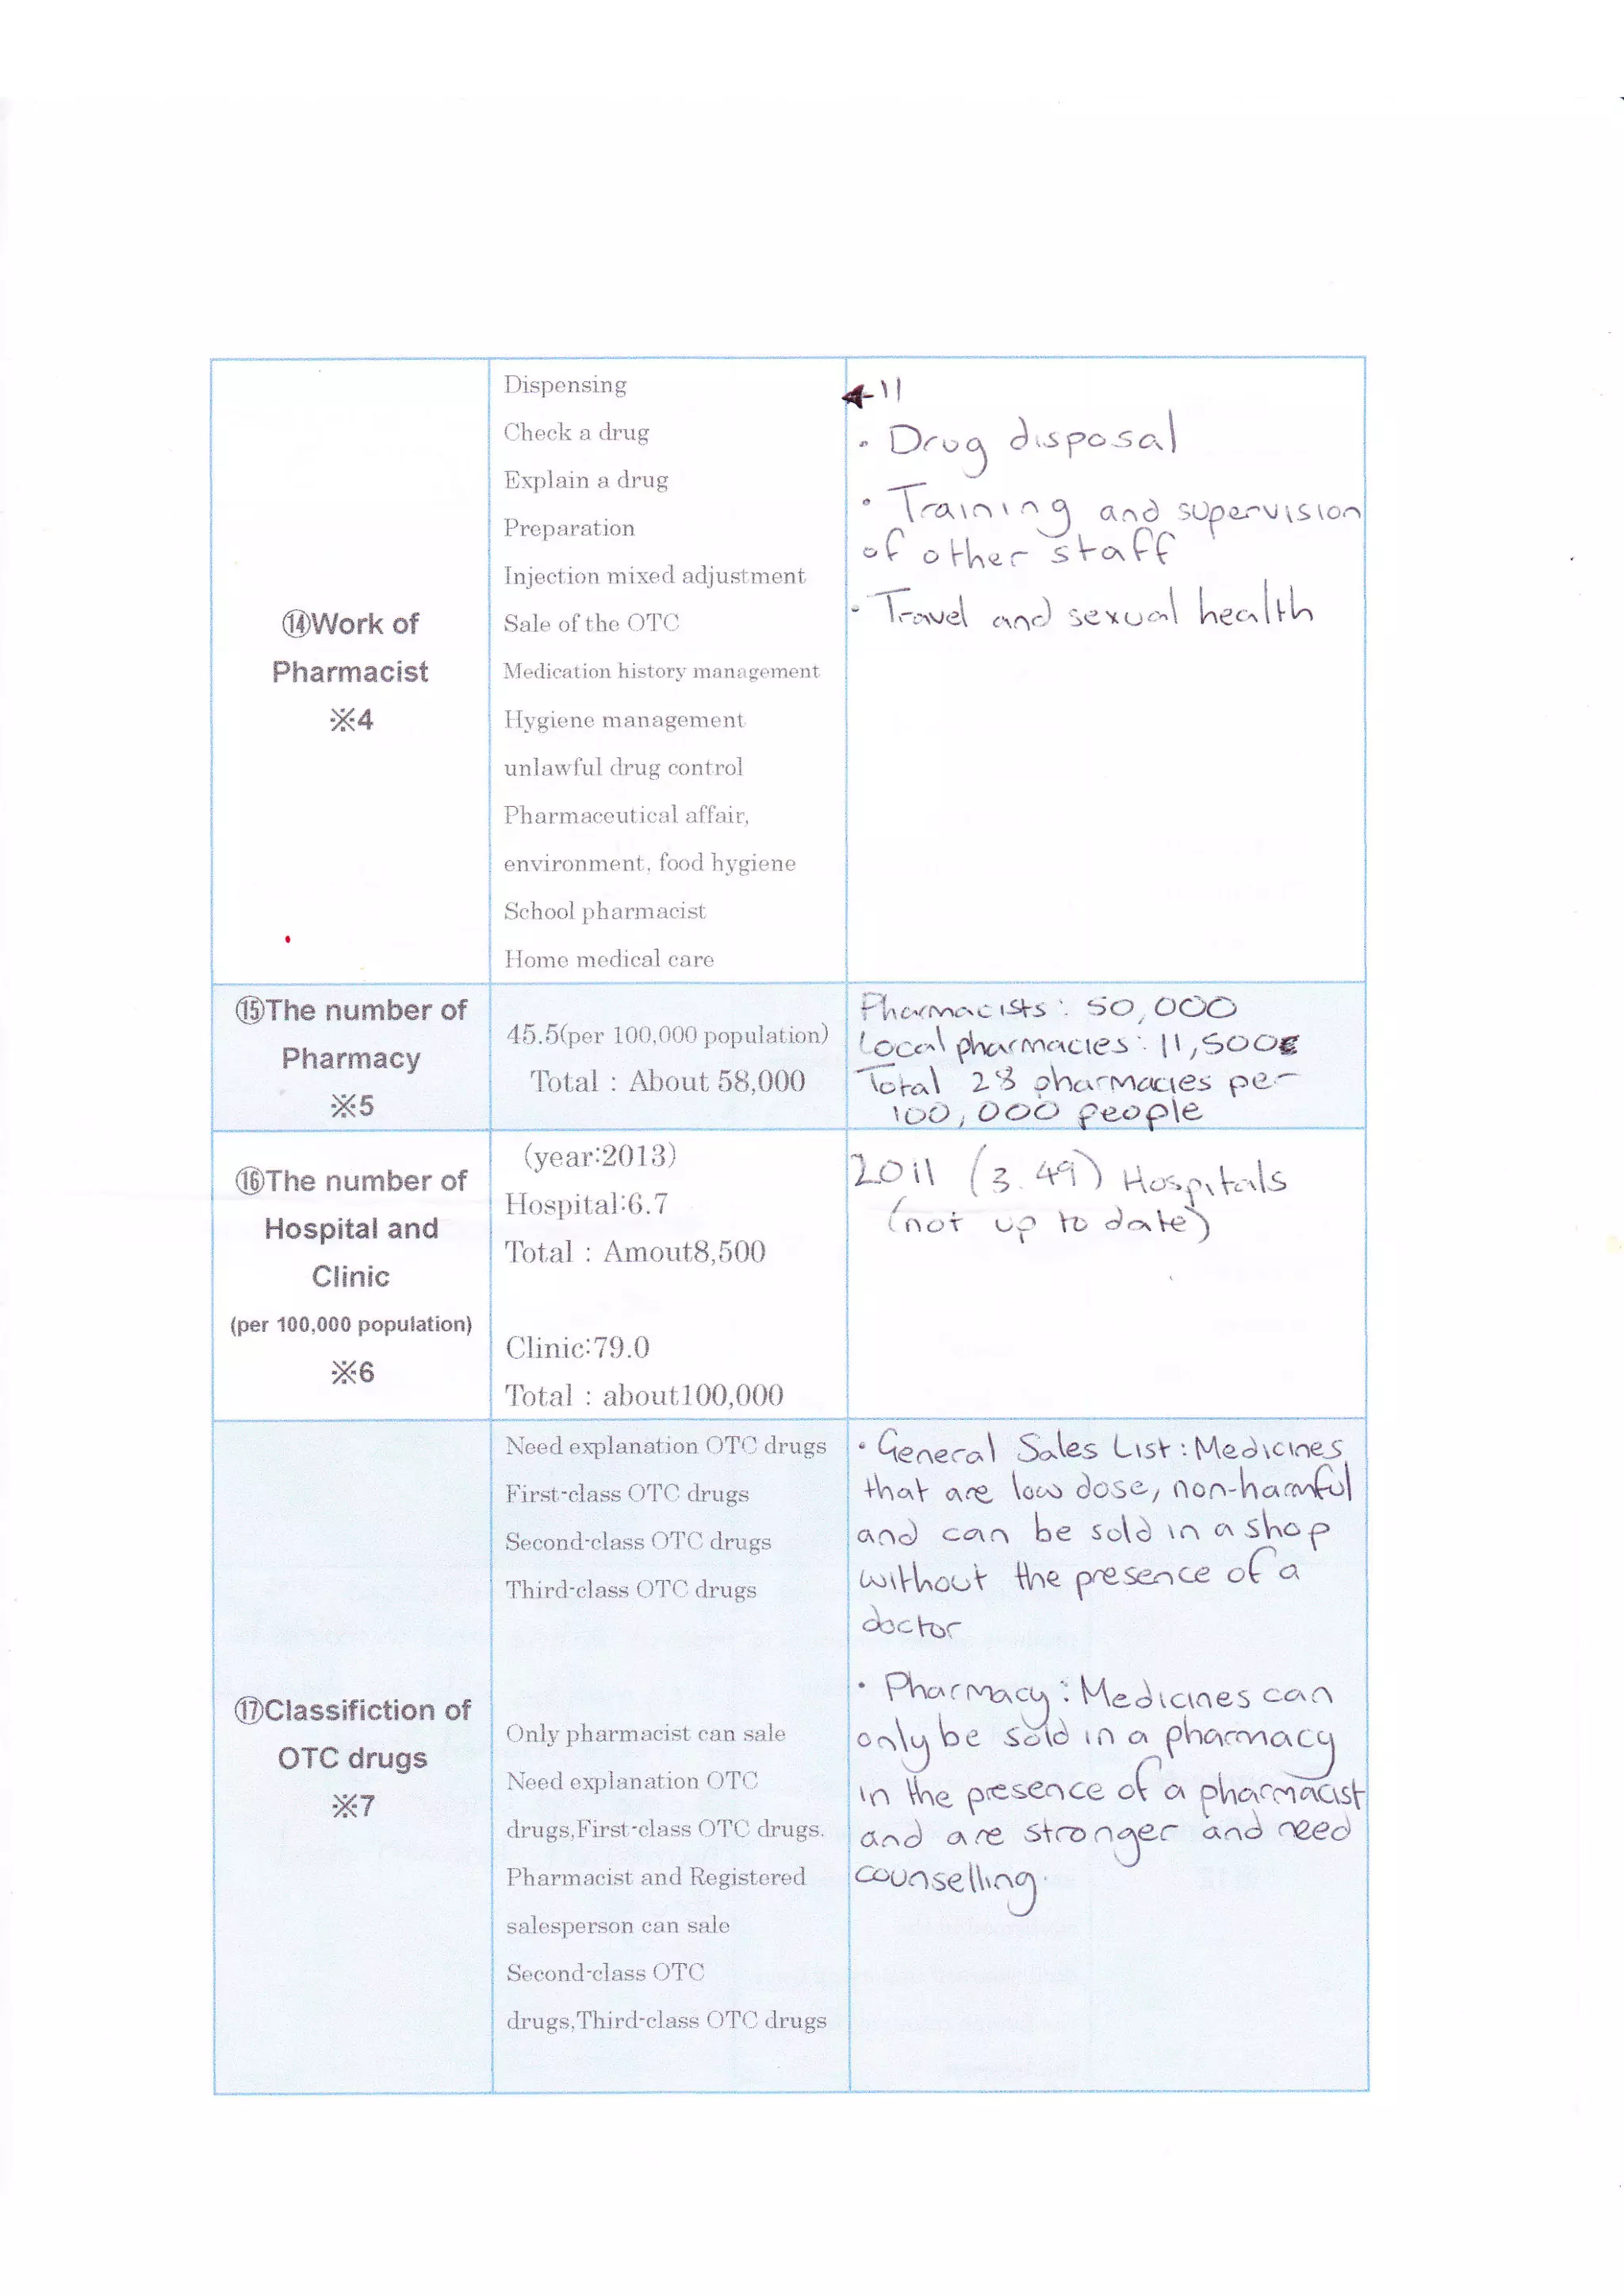 ⑭Work of
Pharmacist
※4
Dispensing
Check a drug
Explain a drug
Preparation
Injection mixed adjustment
Sale of the OTC
Medication history management
Hygiene management
unlawful drug control
Pharmaceutical affair,
environment, food hygiene
School pharmacist
Home medical care
· Drug disposal
· Training and supervision
of other staff
· Travel and sexual health
⑮The number of
Pharmacy
※5
45.5(per 100,000 population)
Total : About 58,000
Pharmacists : 50,000
Local pharmacies : 11,500
Total 28 pharmacies per
100,000 people
⑯The number of
Hospital and
Clinic
(per 100,000 population)
※6
(year:2013)
Hospital:6.7
Total : Amout8,500
Clinic:79.0
Total : about100,000
2011 (3.49) Hospitals
(not up to date)
⑰Classifiction of
OTC drugs
※7
Need explanation OTC drugs
First-class OTC drugs
Second-class OTC drugs
Third-class OTC drugs
Only pharmacist can sale
Need explanation OTC
drugs,First-class OTC drugs.
Pharmacist and Registered
salesperson can sale
Second-class OTC
drugs,Third-class OTC drugs
· General Sales List : Medicines
that are low dose, non-harmful
and can be sold in a shop
without the presence of a
doctor
· Pharmacy : Medicines can
only be sold in a pharmacy
in the presence of a pharmacist
and are stronger and need
counselling.